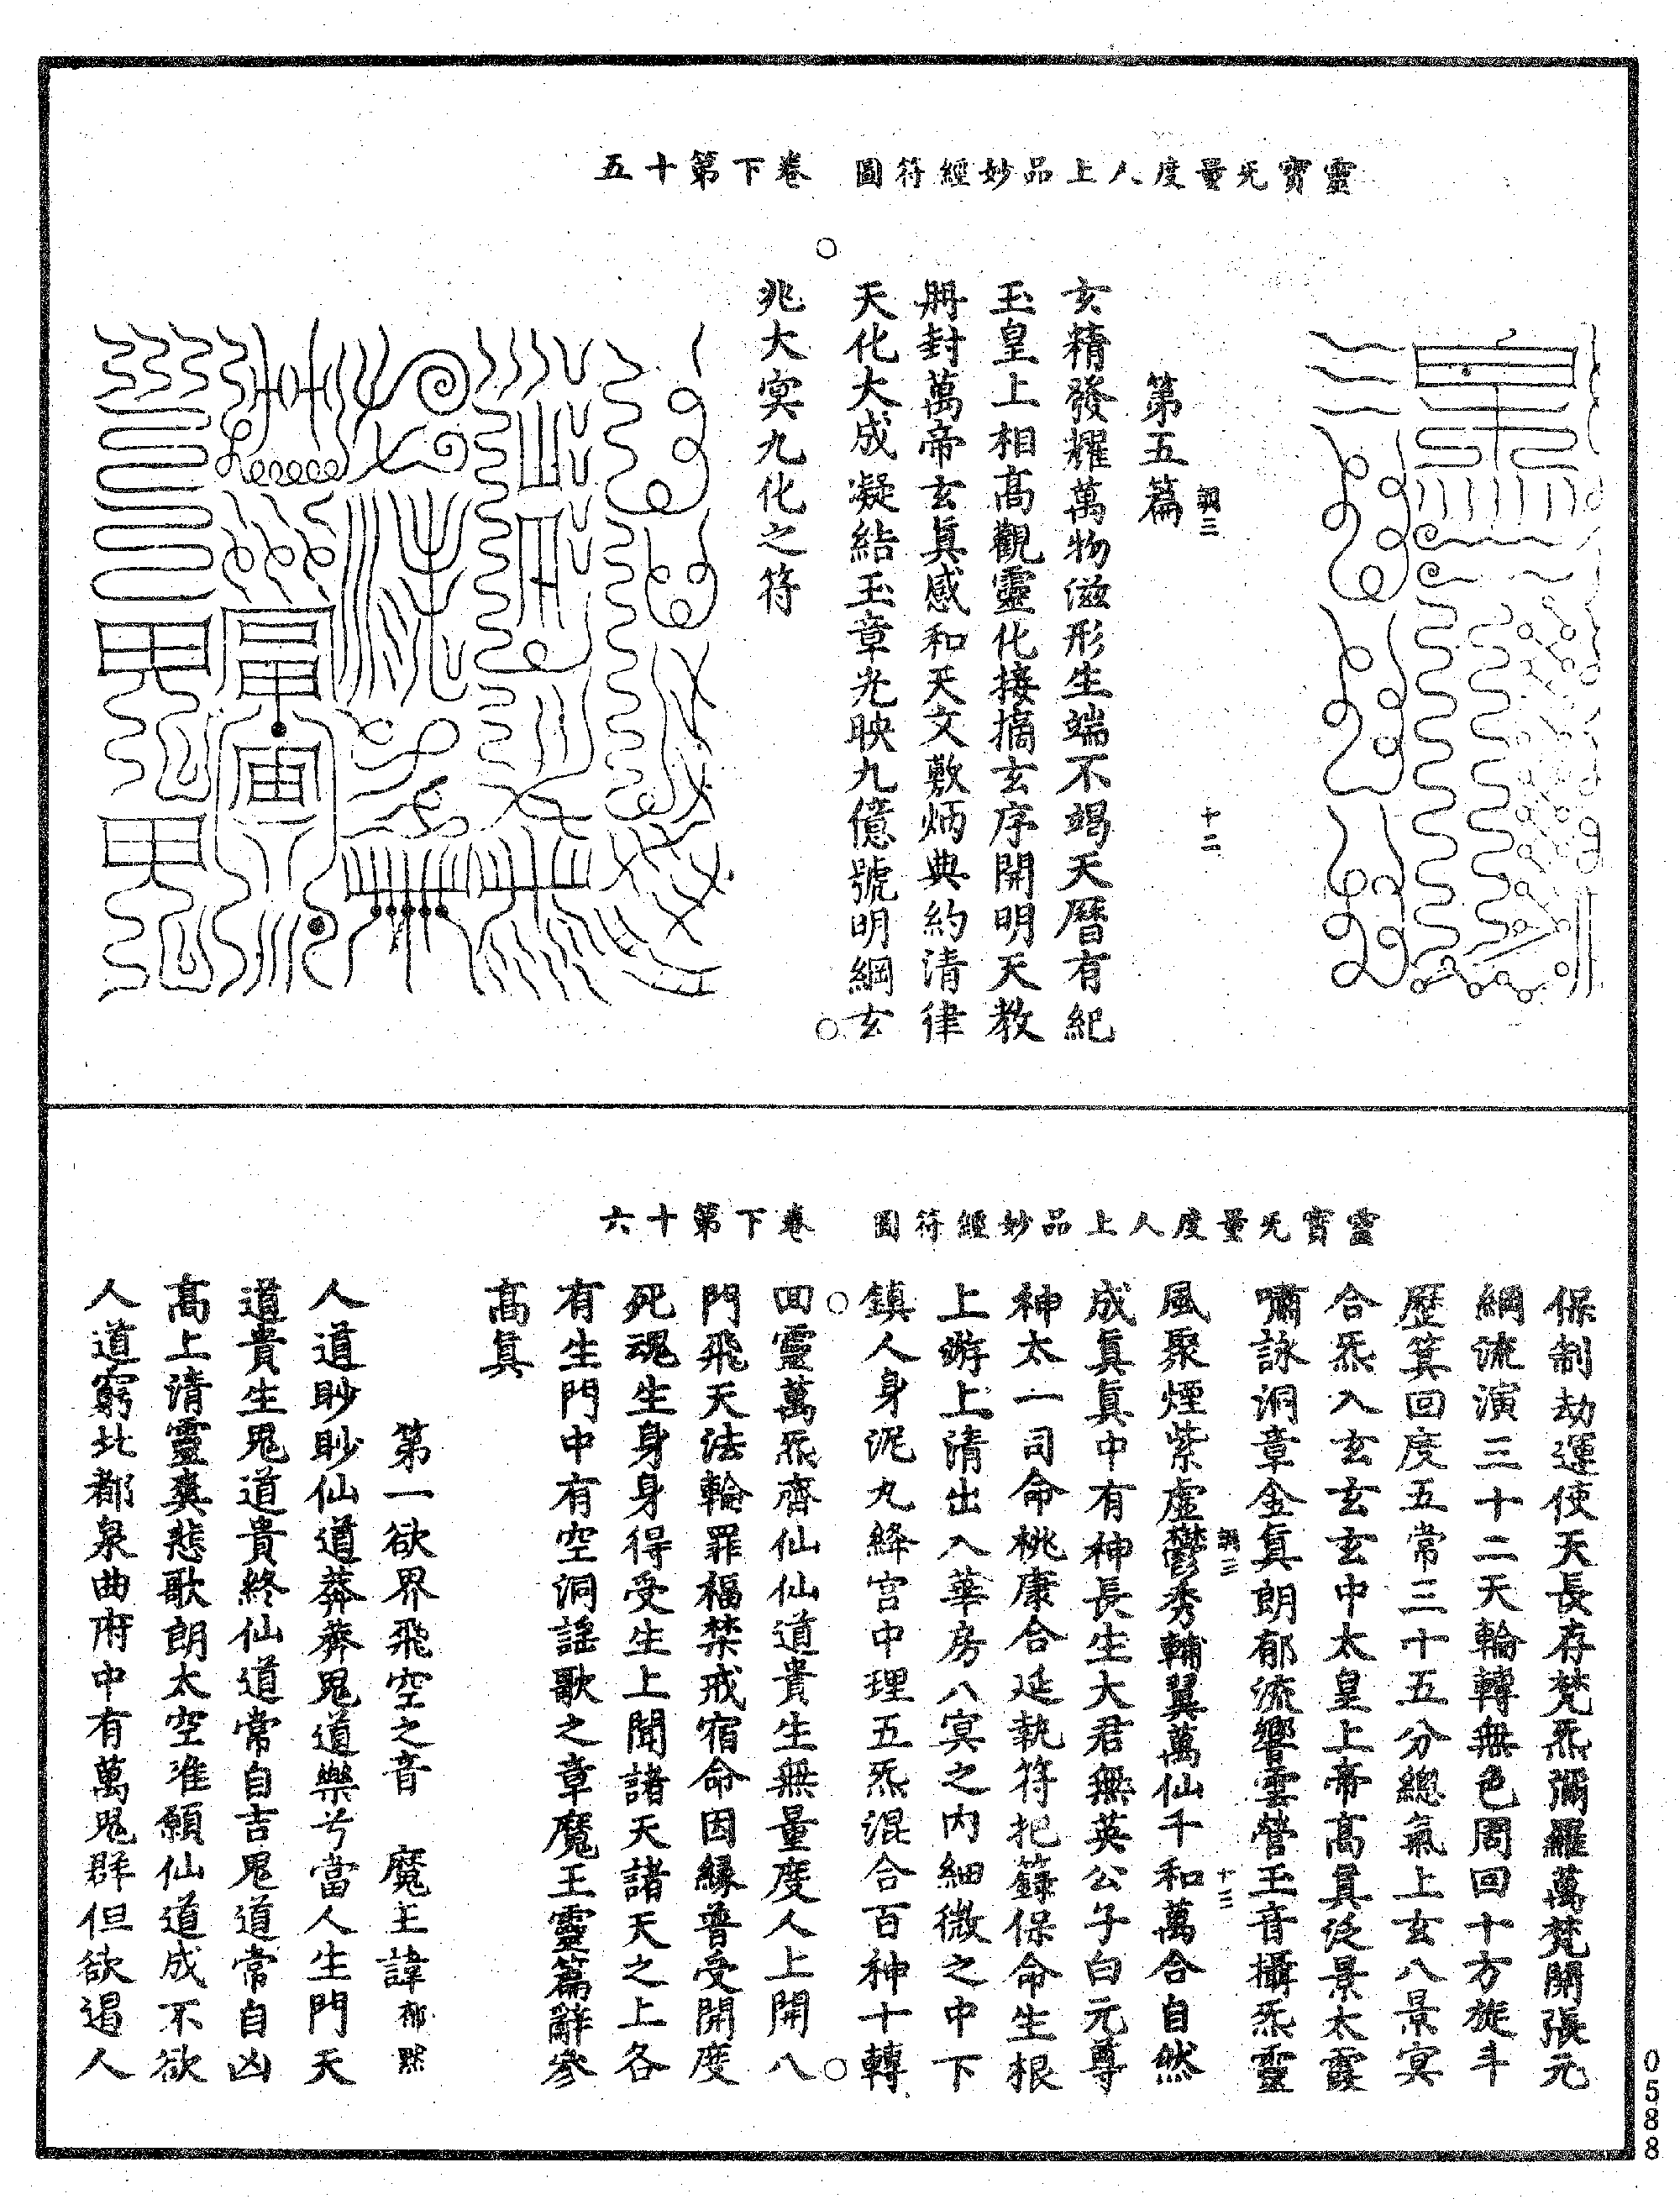 靈寳无量度人上品妙經符圖　卷下第十五
調三　十二
第五篇
玄精發耀萬物滋形生端不竭天曆有紀
玉皇上相髙觀靈化接摘玄序開明天教
將封萬帝玄眞感和天文敷炳典約清律
天化大成凝結玉章光映九億號明綱玄
兆大㝠九化之符
靈寳无量度人上品妙經符圖　卷下第十六
保制劫運使天長存梵炁彌羅萬梵開張元
綱流演三十二天輪轉無色周回十方旋斗
歷箕回度五常三十五分總氣上玄八景㝠
合炁入玄玄玄中太皇上帝髙眞泛景太霞
嘯詠洞章金眞朗郁流響雲營玉音攝炁靈
調三　十三
風聚煙紫虛鬱秀輔翼萬仙千和萬合自然
成眞眞中有神長生大君無英公子白元尊
神太一司命桃康合延執符把籙保命生根
上遊上清出入華房八㝠之内細微之中下
鎮人身泥丸絳宫中理五炁混合百神十轉
回靈萬炁齊仙仙道貴生無量度人上開八
門飛天法輪罪福禁戒宿命因緣普受開度
死魂生身身得受生上聞諸天諸天之上各
有生門中有空洞謡歌之章魔王靈篇辭參
髙眞
第一欲界飛空之音　魔王諱郁黙
人道眇眇仙道莽莽鬼道樂兮當人生門天
道貴生鬼道貴終仙道常自吉鬼道常自凶
髙上清靈爽悲歌朗太空准願仙道成不欲
人道窮北都泉曲府中有萬鬼群但欲遏人
0588